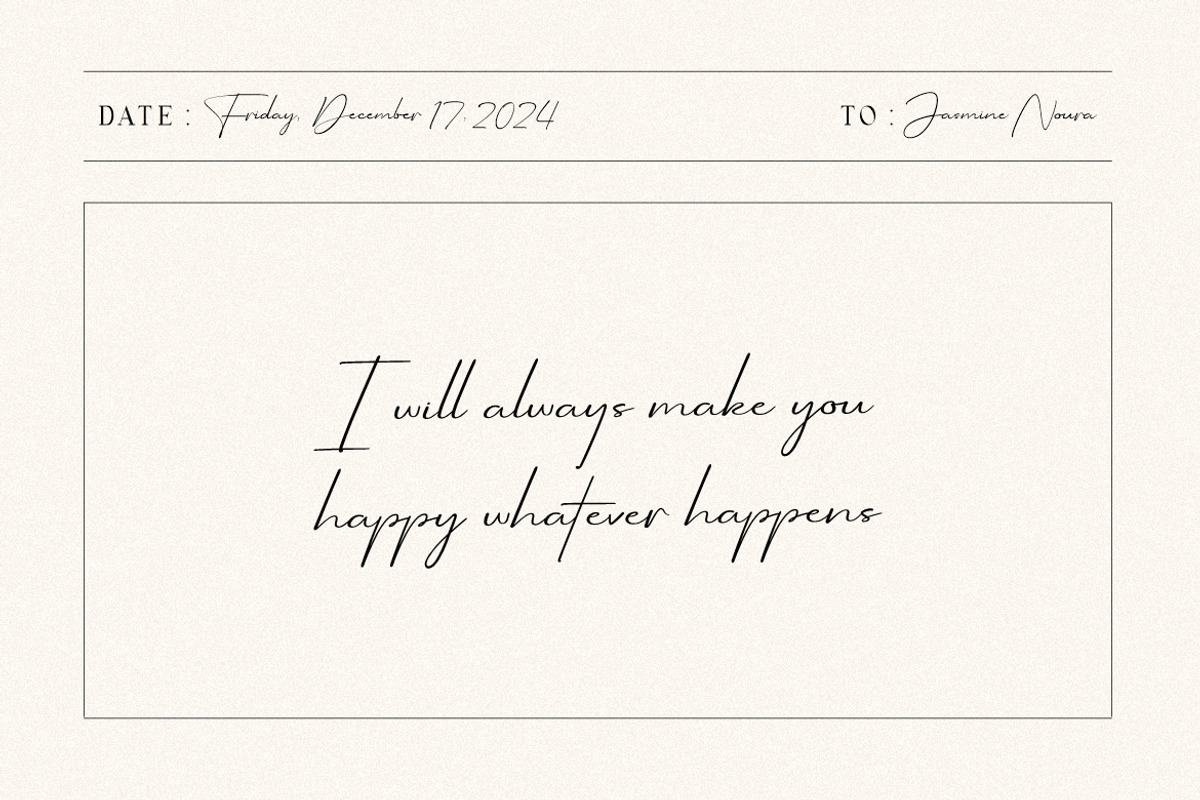 DATE : Friday, December 17, 2024 TO : Jasmine Noura
I will always make you
happy whatever happens